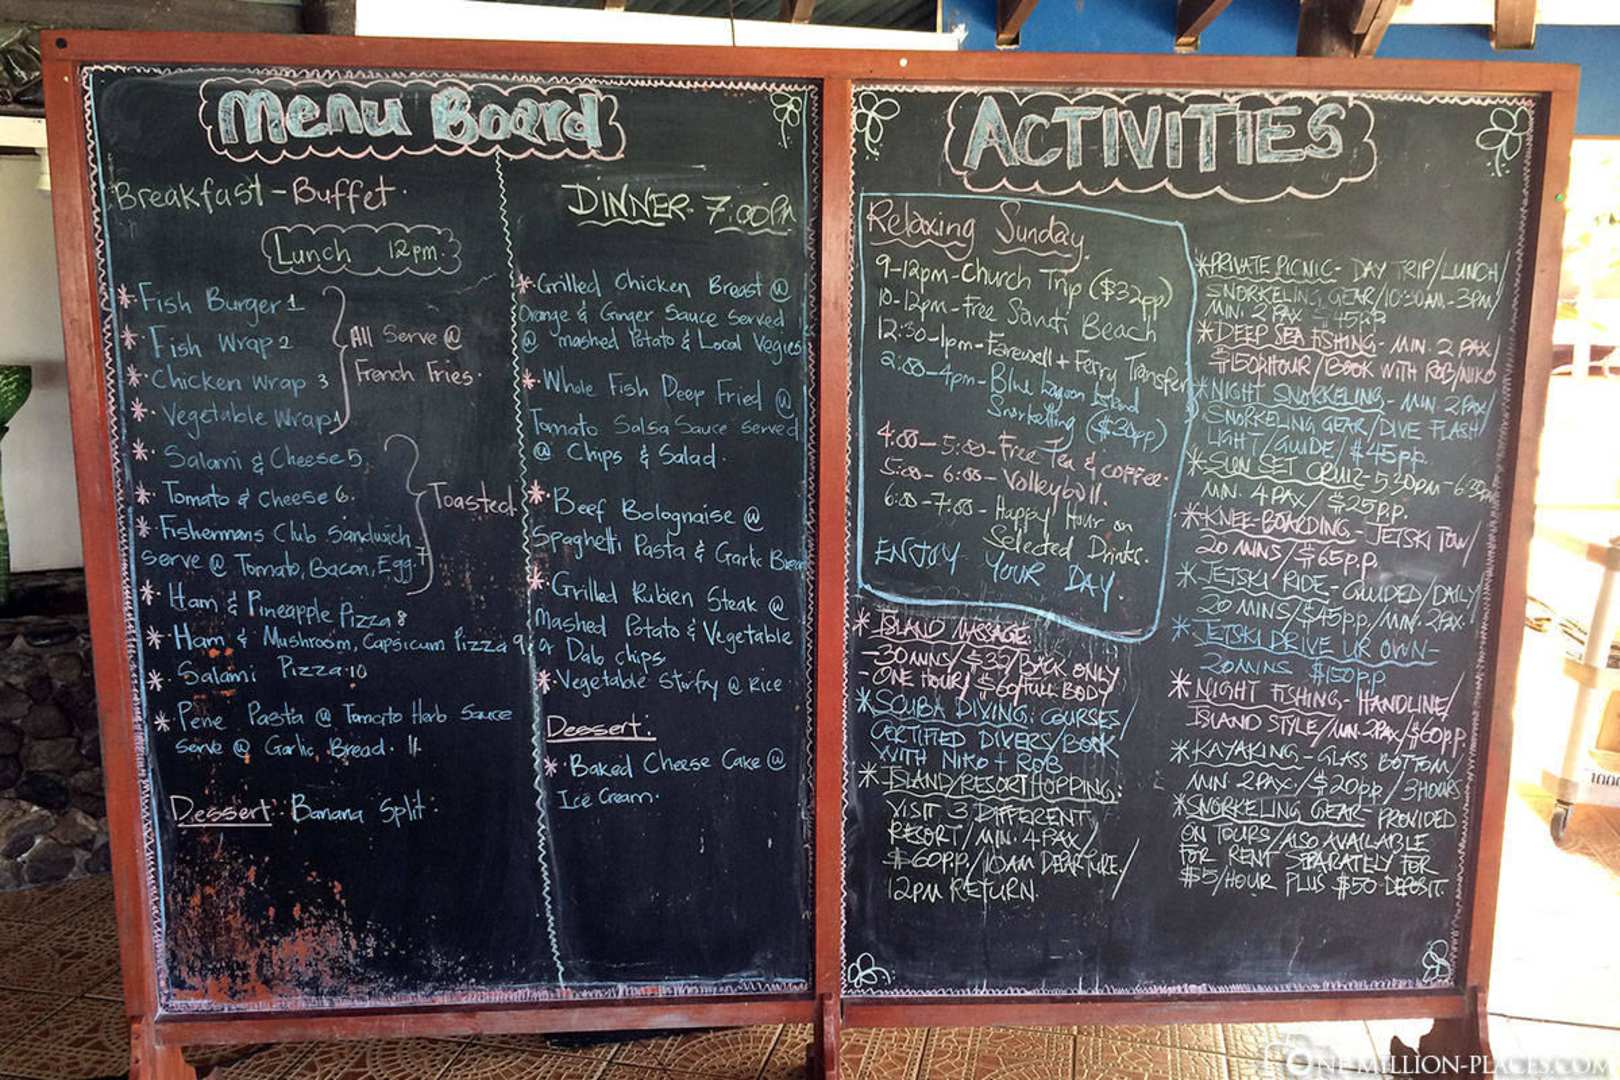 Menu Board
Breakfast - Buffet.
Lunch 12pm.
* Fish Burger 1
* Fish Wrap 2
* Chicken Wrap 3
* Vegetable Wrap 4
All Serve @
French Fries.
* Salami & Cheese 5
* Tomato & Cheese 6.
* Fishermans Club Sandwich
serve @ Tomato, Bacon, Egg. 7
Toasted
* Ham & Pineapple Pizza 8
* Ham & Mushroom, Capsicum Pizza 9
* Salami Pizza 10
* Pene Pasta @ Tomato Herb Sauce
serve @ Garlic Bread. 11
Dessert: Banana Split.
DINNER - 7:00PM
* Grilled Chicken Breast @
Orange & Ginger Sauce served
@ mashed Potato & Local Vegies
* Whole Fish Deep Fried @
Tomato Salsa Sauce served
@ Chips & Salad.
* Beef Bolognaise @
Spaghetti Pasta & Garlic Bread
* Grilled Rubien Steak @
Mashed Potato & Vegetable
or Dalo chips.
* Vegetable Stirfry @ Rice
Dessert:
* Baked Cheese Cake @
Ice Cream.
ACTIVITIES
Relaxing Sunday
9-12pm - Church Trip ($32pp)
10-12pm - Free Sandi Beach
12:30-1pm - Farewell + Ferry Transfer
2:00-4pm - Blue Lagoon Island
Snorkelling ($30pp)
4:00-5:00 - Free Tea & coffee.
5:00-6:00 - Volleyball.
6:00-7:00 - Happy Hour on
Selected Drinks.
ENJOY YOUR DAY.
* ISLAND MASSAGE:
- 30 MINS/$32/BACK ONLY
- ONE HOUR/$60/FULL BODY
* SCUBA DIVING: COURSES/
CERTIFIED DIVERS/BOOK
WITH NIKO + ROB
* ISLAND/RESORT HOPPING:
VISIT 3 DIFFERENT
RESORT/MIN. 4 PAX/
$60PP./10AM DEPARTURE./
12PM RETURN.
* PRIVATE PICNIC - DAY TRIP/LUNCH/
SNORKELING GEAR/10:30AM-3PM/
MIN. 2 PAX $45PP
* DEEP SEA FISHING - MIN. 2 PAX/
$150/HOUR/BOOK WITH ROB/NIKO
* NIGHT SNORKELING - MIN. 2 PAX/
SNORKELING GEAR/DIVE FLASH/
LIGHT/GUIDE/$45PP.
* SUN SET CRUIZ - 5:30PM-6:30PM
MIN. 4 PAX/$25P.P.
* KNEE-BOARDING - JETSKI TOW/
20 MINS/$65P.P.
* JETSKI RIDE - GUIDED/DAILY
20 MINS/$45PP./MIN. 2 PAX.
* JETSKI DRIVE UR OWN-
20MINS $150PP
* NIGHT FISHING - HANDLINE/
ISLAND STYLE/MIN. 2 PAX/$60P.P.
* KAYAKING - GLASS BOTTOM/
MIN 2 PAX/$20PP/3 HOURS
* SNORKELING GEAR - PROVIDED
ON TOURS/ALSO AVAILABLE
FOR RENT SEPARATELY FOR
$5/HOUR PLUS $50 DEPOSIT.
ONE MILLION-PLACES.COM